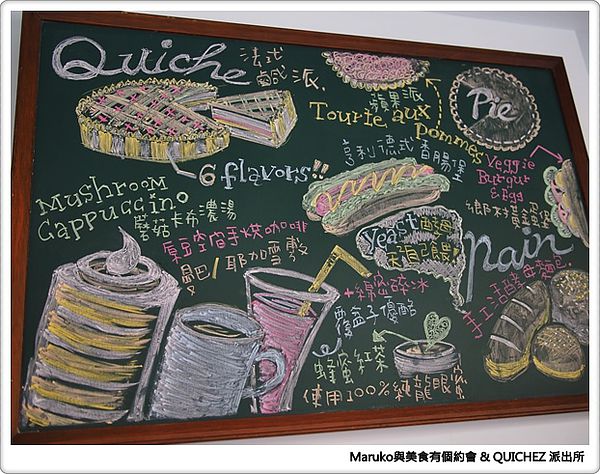 Quiche
法式
鹹派.
蘋果派
Tourte aux
pommes
Pie
6 flavors!!
亨利德式香腸堡
Veggie
Burgur
& Egg
Mushroom
Cappuccino
蘑菇卡布濃湯
手烘咖啡
耶加雪
yeast
pain
手工活酵母麵包.
+綿密碎冰
覆盆子優酪
蜂蜜紅茶
使用100%純龍眼蜜
Maruko與美食有個約會 & QUICHEZ 派出所